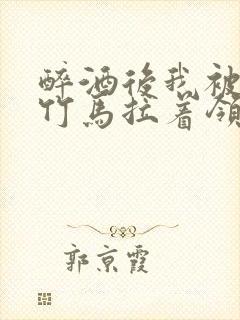 醉酒後我被
竹馬拉着領
郭京霞